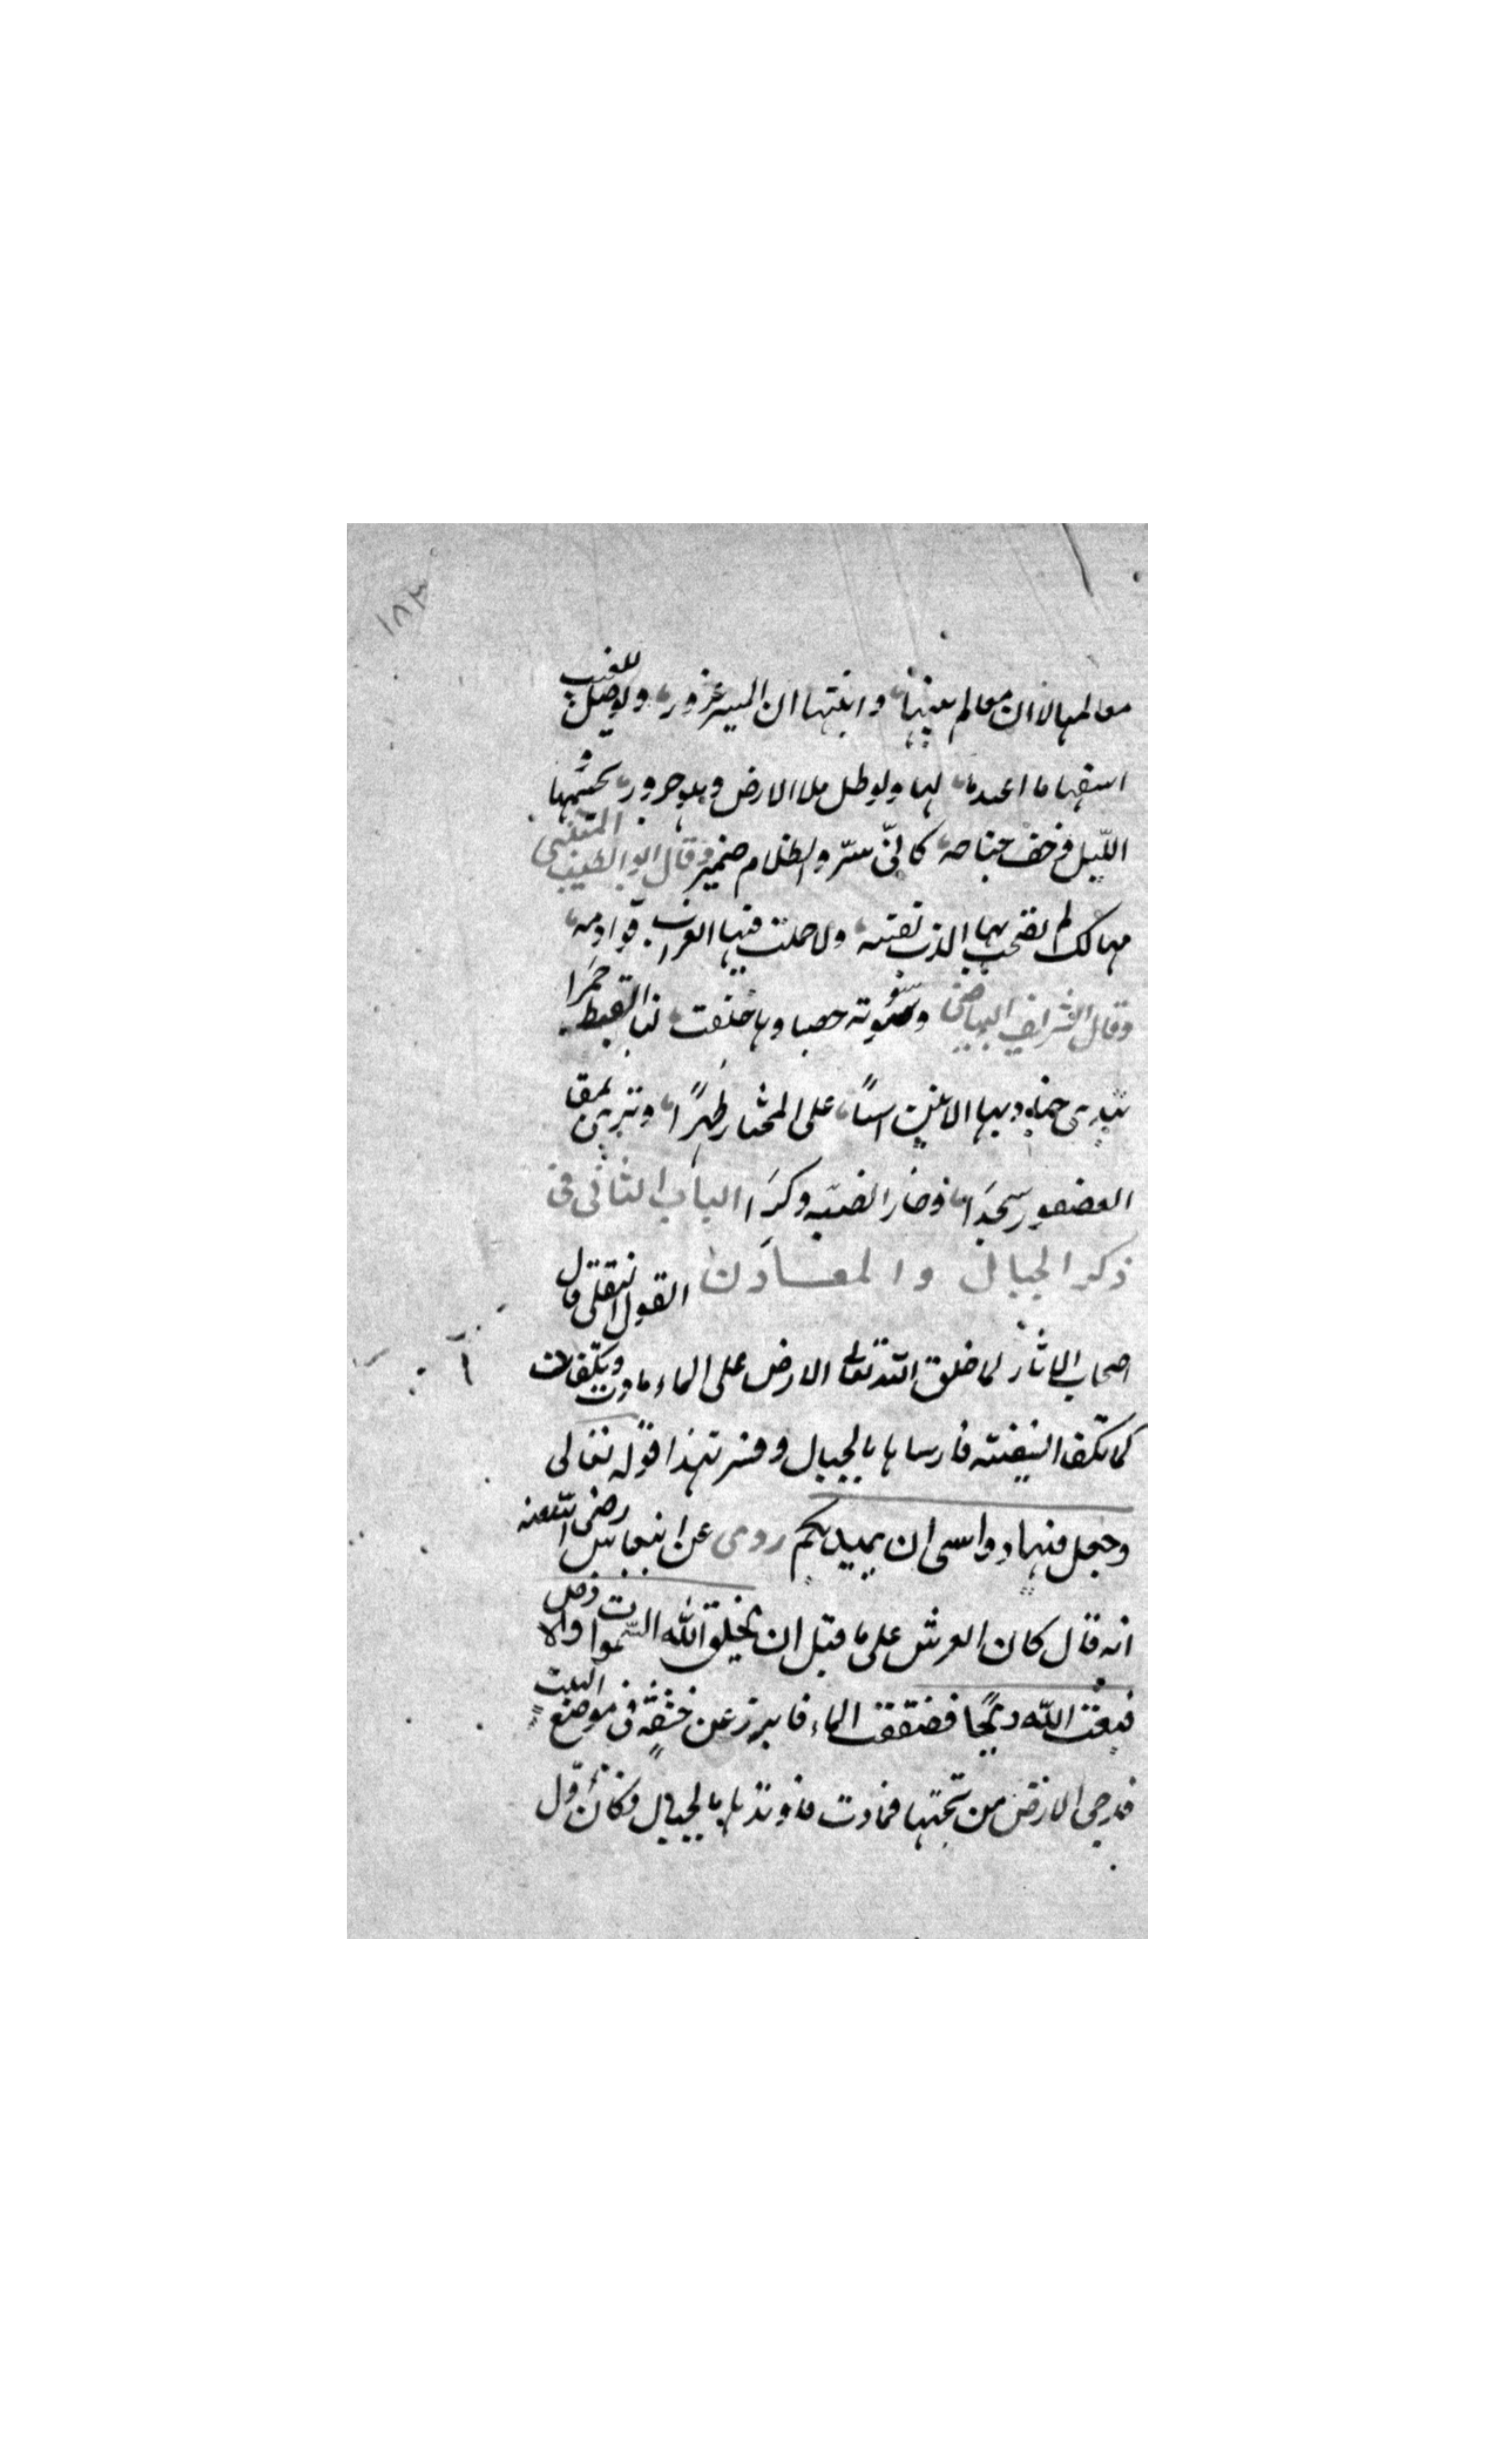 ١٨٣
معالمها لا ان معالم بينها وابنتها ان المسير غرور ولو قيل للغيب
اسقها ما اعيده لها ولو ظل ملا الارض وهو حرور تجشمها و
الليل في خف جناحه كاني سرّ والظلام ضمير وقال ابو الطيب المتنبي
مهالك لم تصحب بها الذئب نفسه ولا حملت فيها الغراب قوادمه
وقال الشريف البياضي ومشوته حصباوها خلفت لنا القيظ جمرا
العصفور سجدا وصار الضب وكرا الباب الثاني في
ذكر الجبال والمعادن القول النقلي قال
اصحاب الاثار لما خلق الله تعالى الارض على الماء مادت وتكفات
كما تكفا السفينة فارساها بالجبال وفسر بهذا قوله تعالى
وجعل فيها رواسى ان يميد بكم روى عن ابن عباس رضى الله عنه
انه قال كان العرش على ما قبل ان يخلق الله السموات والارض
فبعث الله ريحا فصفقت الماء فابرز عن خشفة في موضع البيت
فدحى الارض من تحتها فمادت فاوتدها بالجبال فكان اول